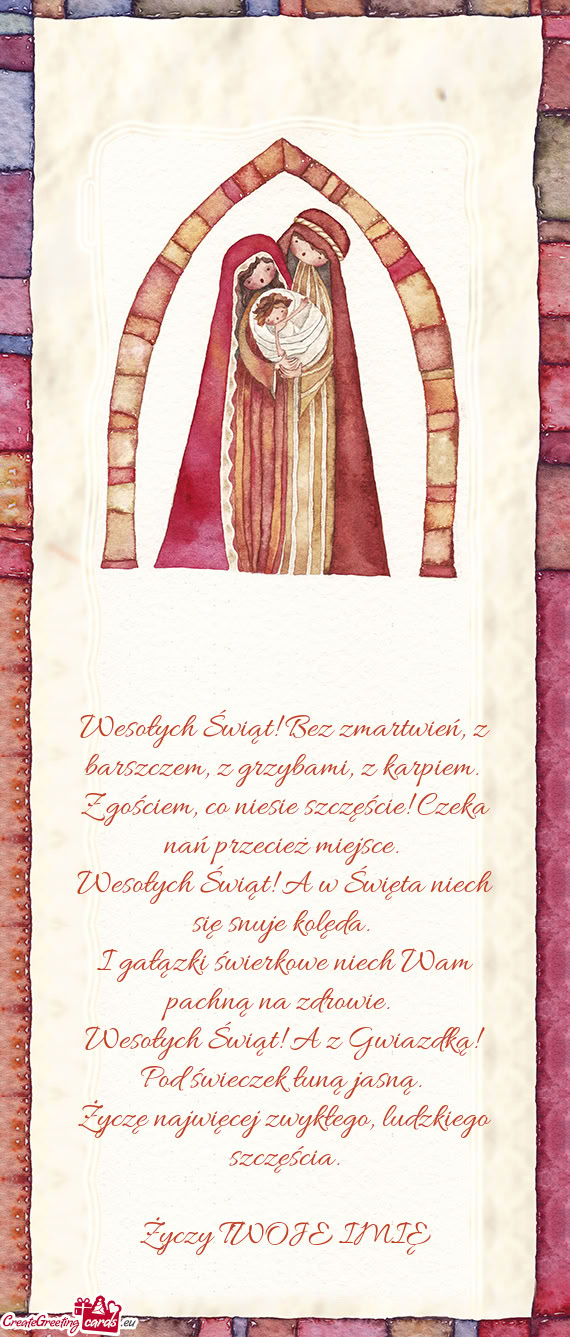 Wesołych Świąt! Bez zmartwień, z
barszczem, z grzybami, z karpiem.
Z gościem, co niesie szczęście! Czeka
nań przecież miejsce.
Wesołych Świąt! A w Święta niech
się snuje kolęda.
I gałązki świerkowe niech Wam
pachną na zdrowie.
Wesołych Świąt! A z Gwiazdką!
Pod świeczek łuną jasną.
Życzę najwięcej zwykłego, ludzkiego
szczęścia.
Życzy TWOJE IMIĘ
CreateGreeting cards .eu